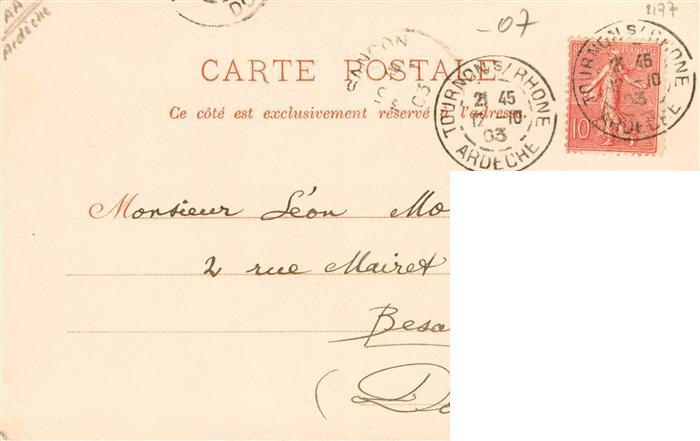 AA
Ardèche
DO
-07
2177
CARTE POSTALE
Ce côté est exclusivement réservé à l'adresse.
TOURNON S/ RHONE
21 45
12 10
03
ARDECHE
TOURNON S/ RHONE
45
10
03
ARDECHE
RÉPUBLIQUE FRANÇAISE
10
SANÇON
03
Monsieur Léon Mo
2 rue Mairet
Besa
(Do